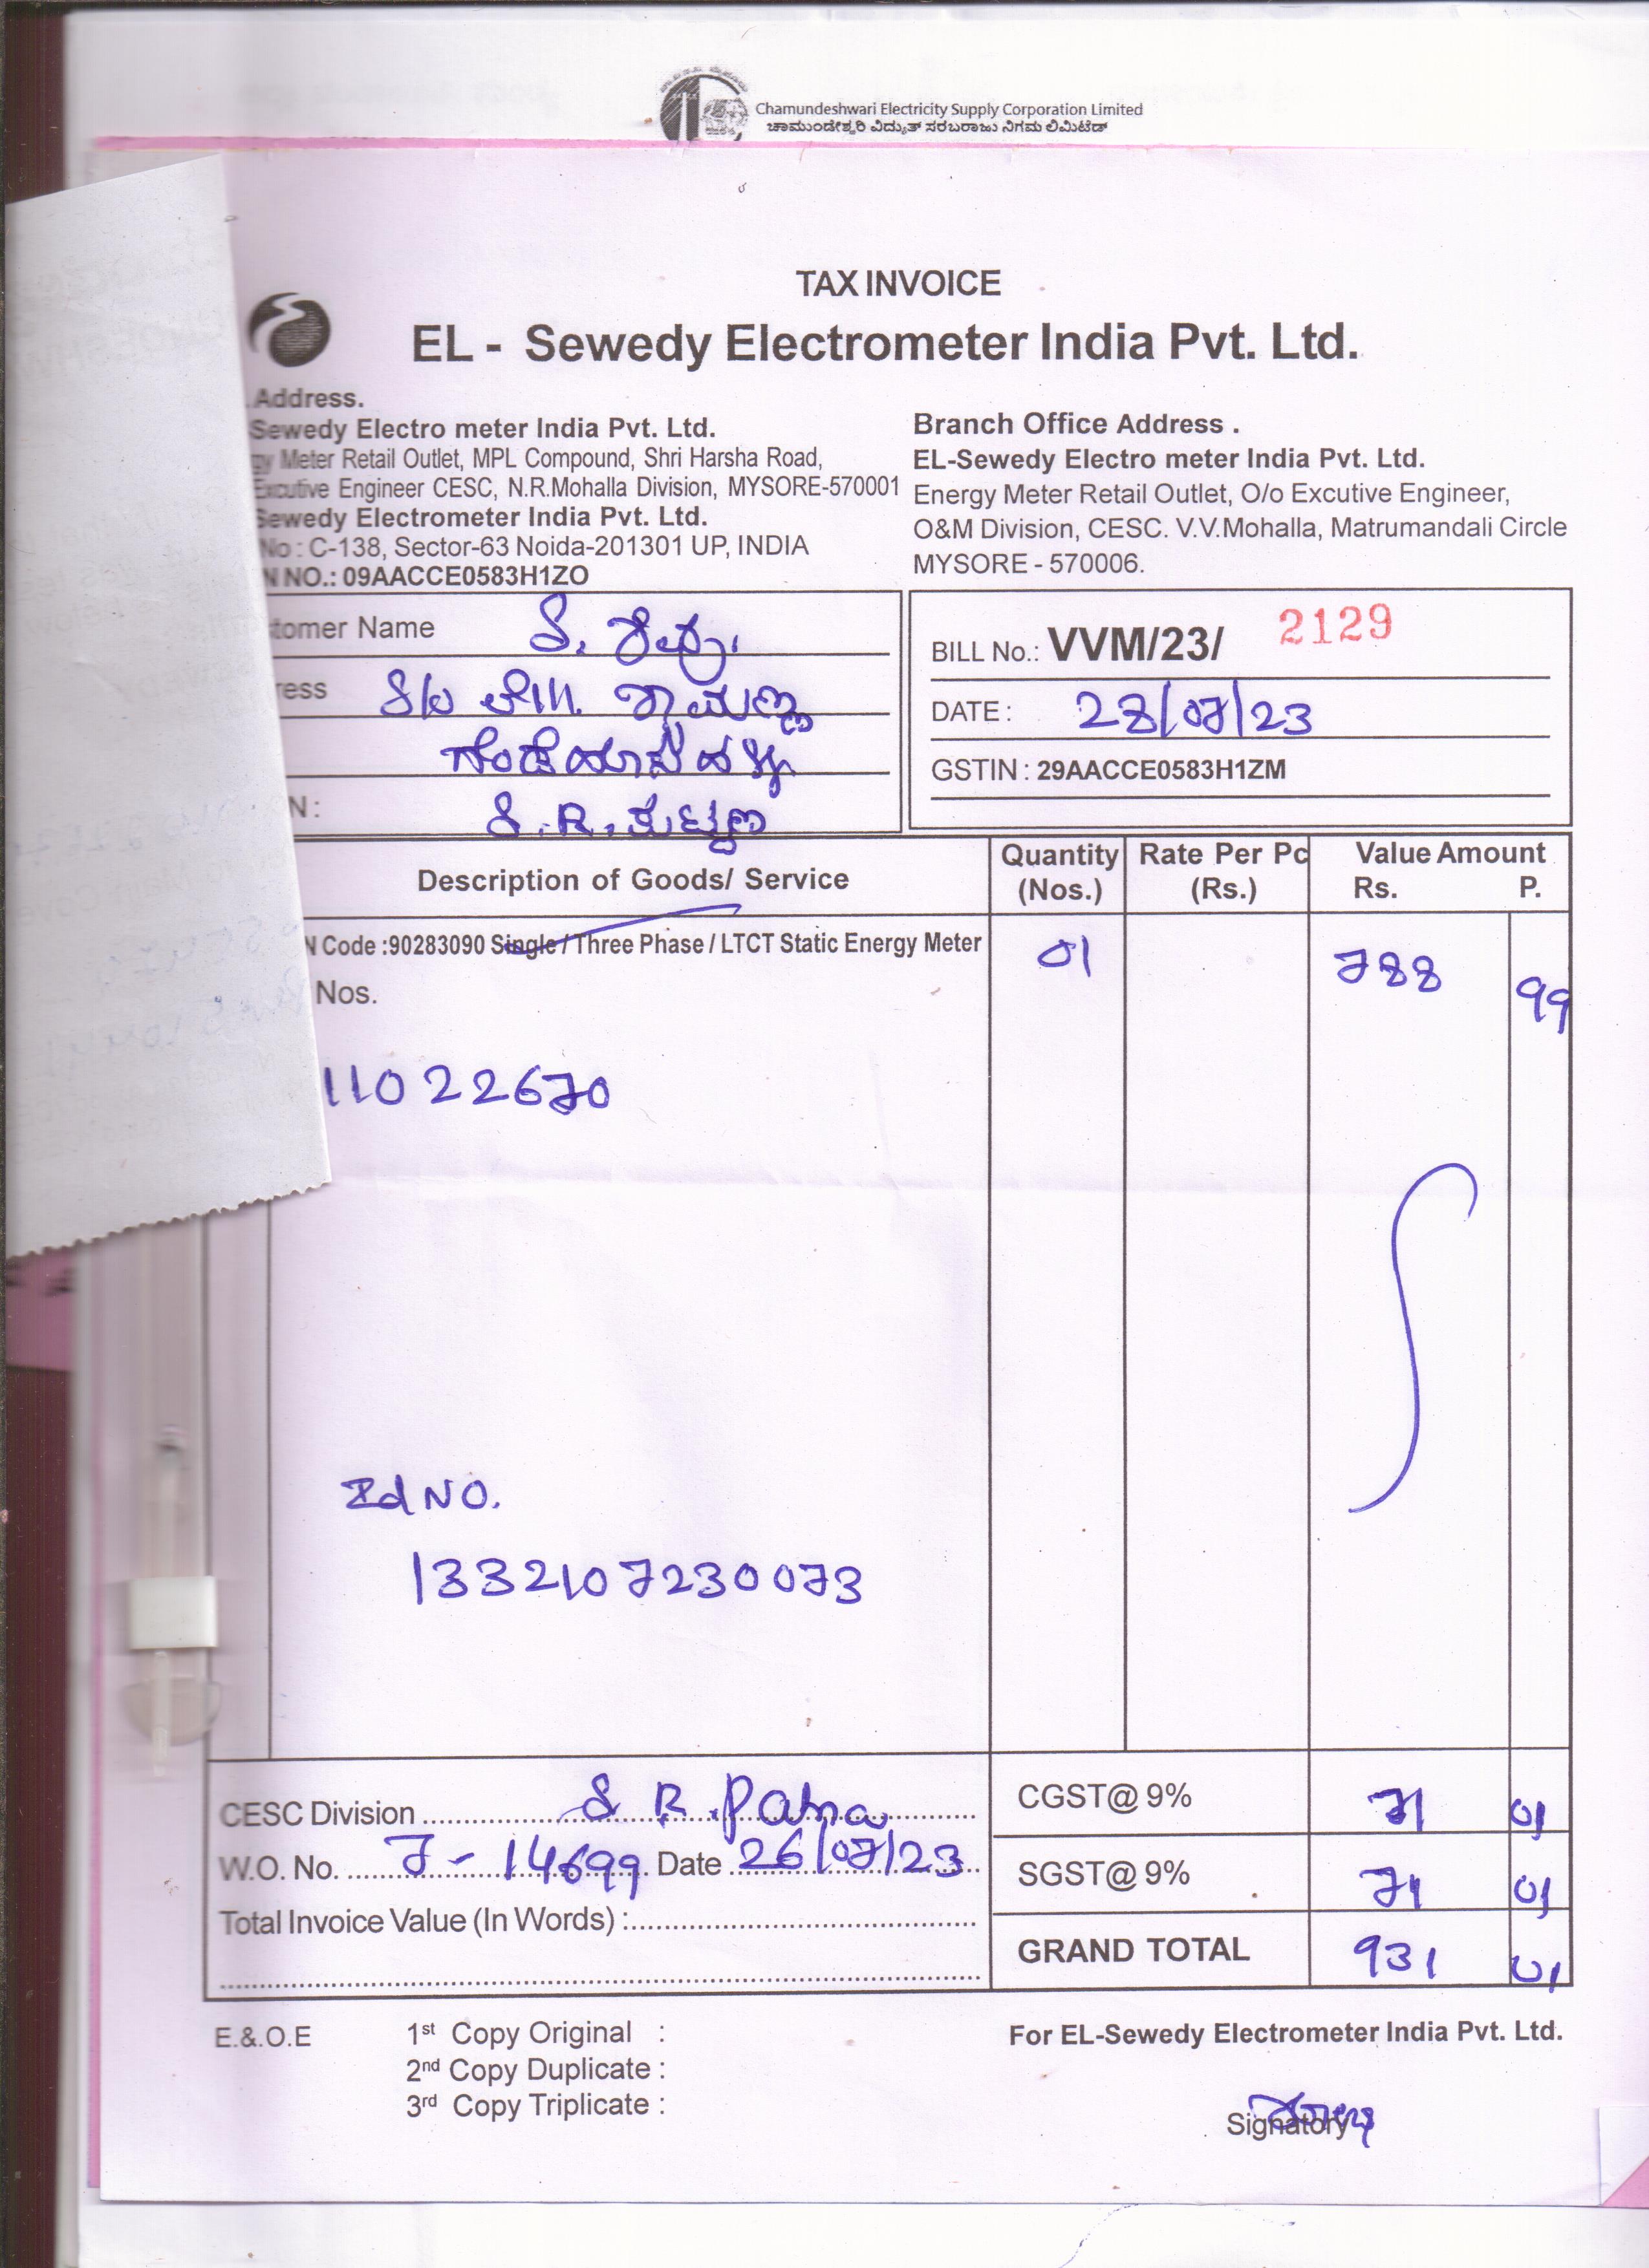 Chamundeshwari Electricity Supply Corporation Limited
ಚಾಮುಂಡೇಶ್ವರಿ ವಿದ್ಯುತ್ ಸರಬರಾಜು ನಿಗಮ ಲಿಮಿಟೆಡ್
TAX INVOICE
EL - Sewedy Electrometer India Pvt. Ltd.
Address.
Sewedy Electro meter India Pvt. Ltd.
Meter Retail Outlet, MPL Compound, Shri Harsha Road,
Excutive Engineer CESC, N.R.Mohalla Division, MYSORE-570001
Sewedy Electrometer India Pvt. Ltd.
No : C-138, Sector-63 Noida-201301 UP, INDIA
NO.: 09AACCE0583H1ZO
Branch Office Address .
EL-Sewedy Electro meter India Pvt. Ltd.
Energy Meter Retail Outlet, O/o Excutive Engineer,
O&M Division, CESC. V.V.Mohalla, Matrumandali Circle
MYSORE - 570006.
Name
S/o
S.R.
BILL No.: VVM/23/ 2129
DATE : 28/07/23
GSTIN : 29AACCE0583H1ZM
Description of Goods/ Service Quantity (Nos.) Rate Per Pc (Rs.) Value Amount Rs. P.
Code :90283090 Single / Three Phase / LTCT Static Energy Meter 01 788 99
Nos.
11022670
Id NO.
1332107230073
CESC Division S R Patna
W.O. No. J - 14699 Date 26/07/23
Total Invoice Value (In Words) :
CGST@ 9% 71 01
SGST@ 9% 71 01
GRAND TOTAL 931 01
E.&.O.E
1st Copy Original :
2nd Copy Duplicate :
3rd Copy Triplicate :
For EL-Sewedy Electrometer India Pvt. Ltd.
Signatory